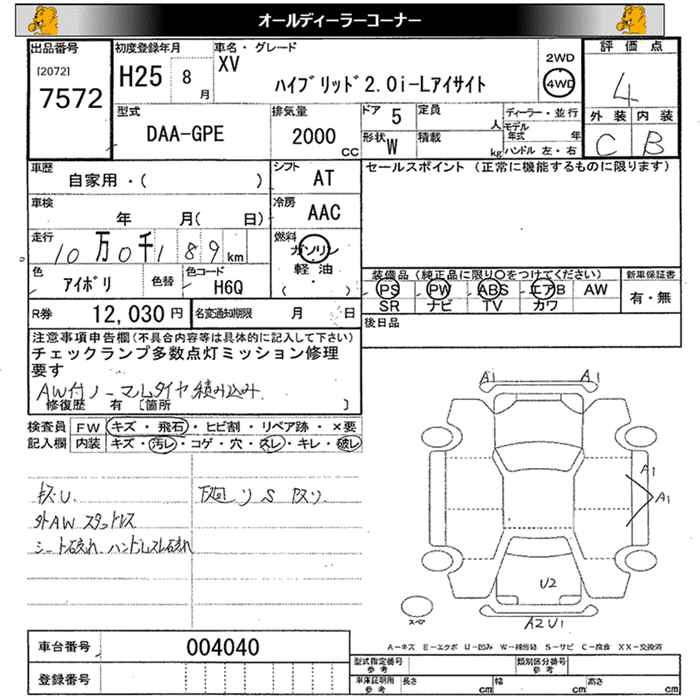 オールディーラーコーナー
出品番号 [2072] 7572
初度登録年月 H25 8 月
車名・グレード XV ハイブリッド2.0i-Lアイサイト
2WD 4WD
評価点 4
外装 C 内装 B
型式 DAA-GPE
排気量 2000 CC
ドア 5 定員 人
形状 W 積載 kg
ディーラー・並行
モデル年式 年
ハンドル 左・右
車歴 自家用・( )
シフト AT
セールスポイント (正常に機能するものに限ります)
車検 年 月( 日)
冷房 AAC
走行 10万0千189km
燃料 ガソリン 軽油・ ( )
色 アイボリ 色替 色コード H6Q
装備品 (純正品に限り○をつけてください) 新車保証書
PS PW ABS エアB AW 有・無
SR ナビ TV カワ
R券 12,030円 名変通知期限 月 日
後日品
注意事項申告欄(不具合内容等は具体的に記入して下さい)
チェックランプ多数点灯ミッション修理
要す
AW付ノーマルタイヤ積み込み
修復歴 有 [箇所 ]
検査員 FW キズ・飛石・ヒビ割・リペア跡・×要
記入欄 内装 キズ・汚レ・コゲ・穴・スレ・キレ・破レ
キズU. 下廻りS
外AWスタッドレス
シート破れ、ハンドルスレ
A1 A1
A1
A1
U2
A2 U1
スペア
A-キズ E-エクボ U-凹み W-補修跡 S-サビ C-腐食 XX-交換済
車台番号 004040
登録番号
型式指定番号 参考 類別区分番号 参考
車庫証明用 参考 長さ cm 幅 cm 高さ cm